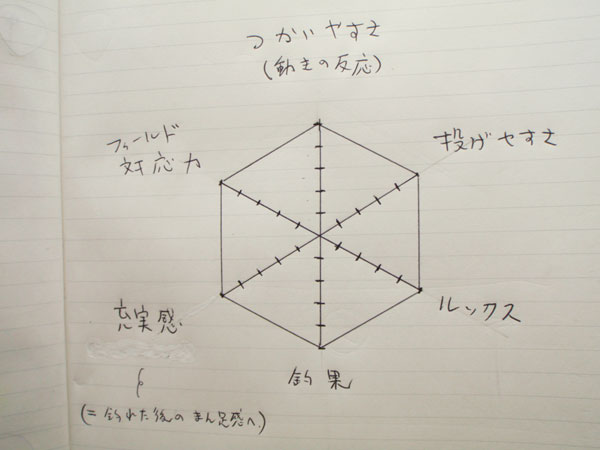 つかいやすさ
(動きの反応)
フィールド
対応力
投げやすさ
ルックス
充実感
釣果
(= 釣れた後のまん足感へ)